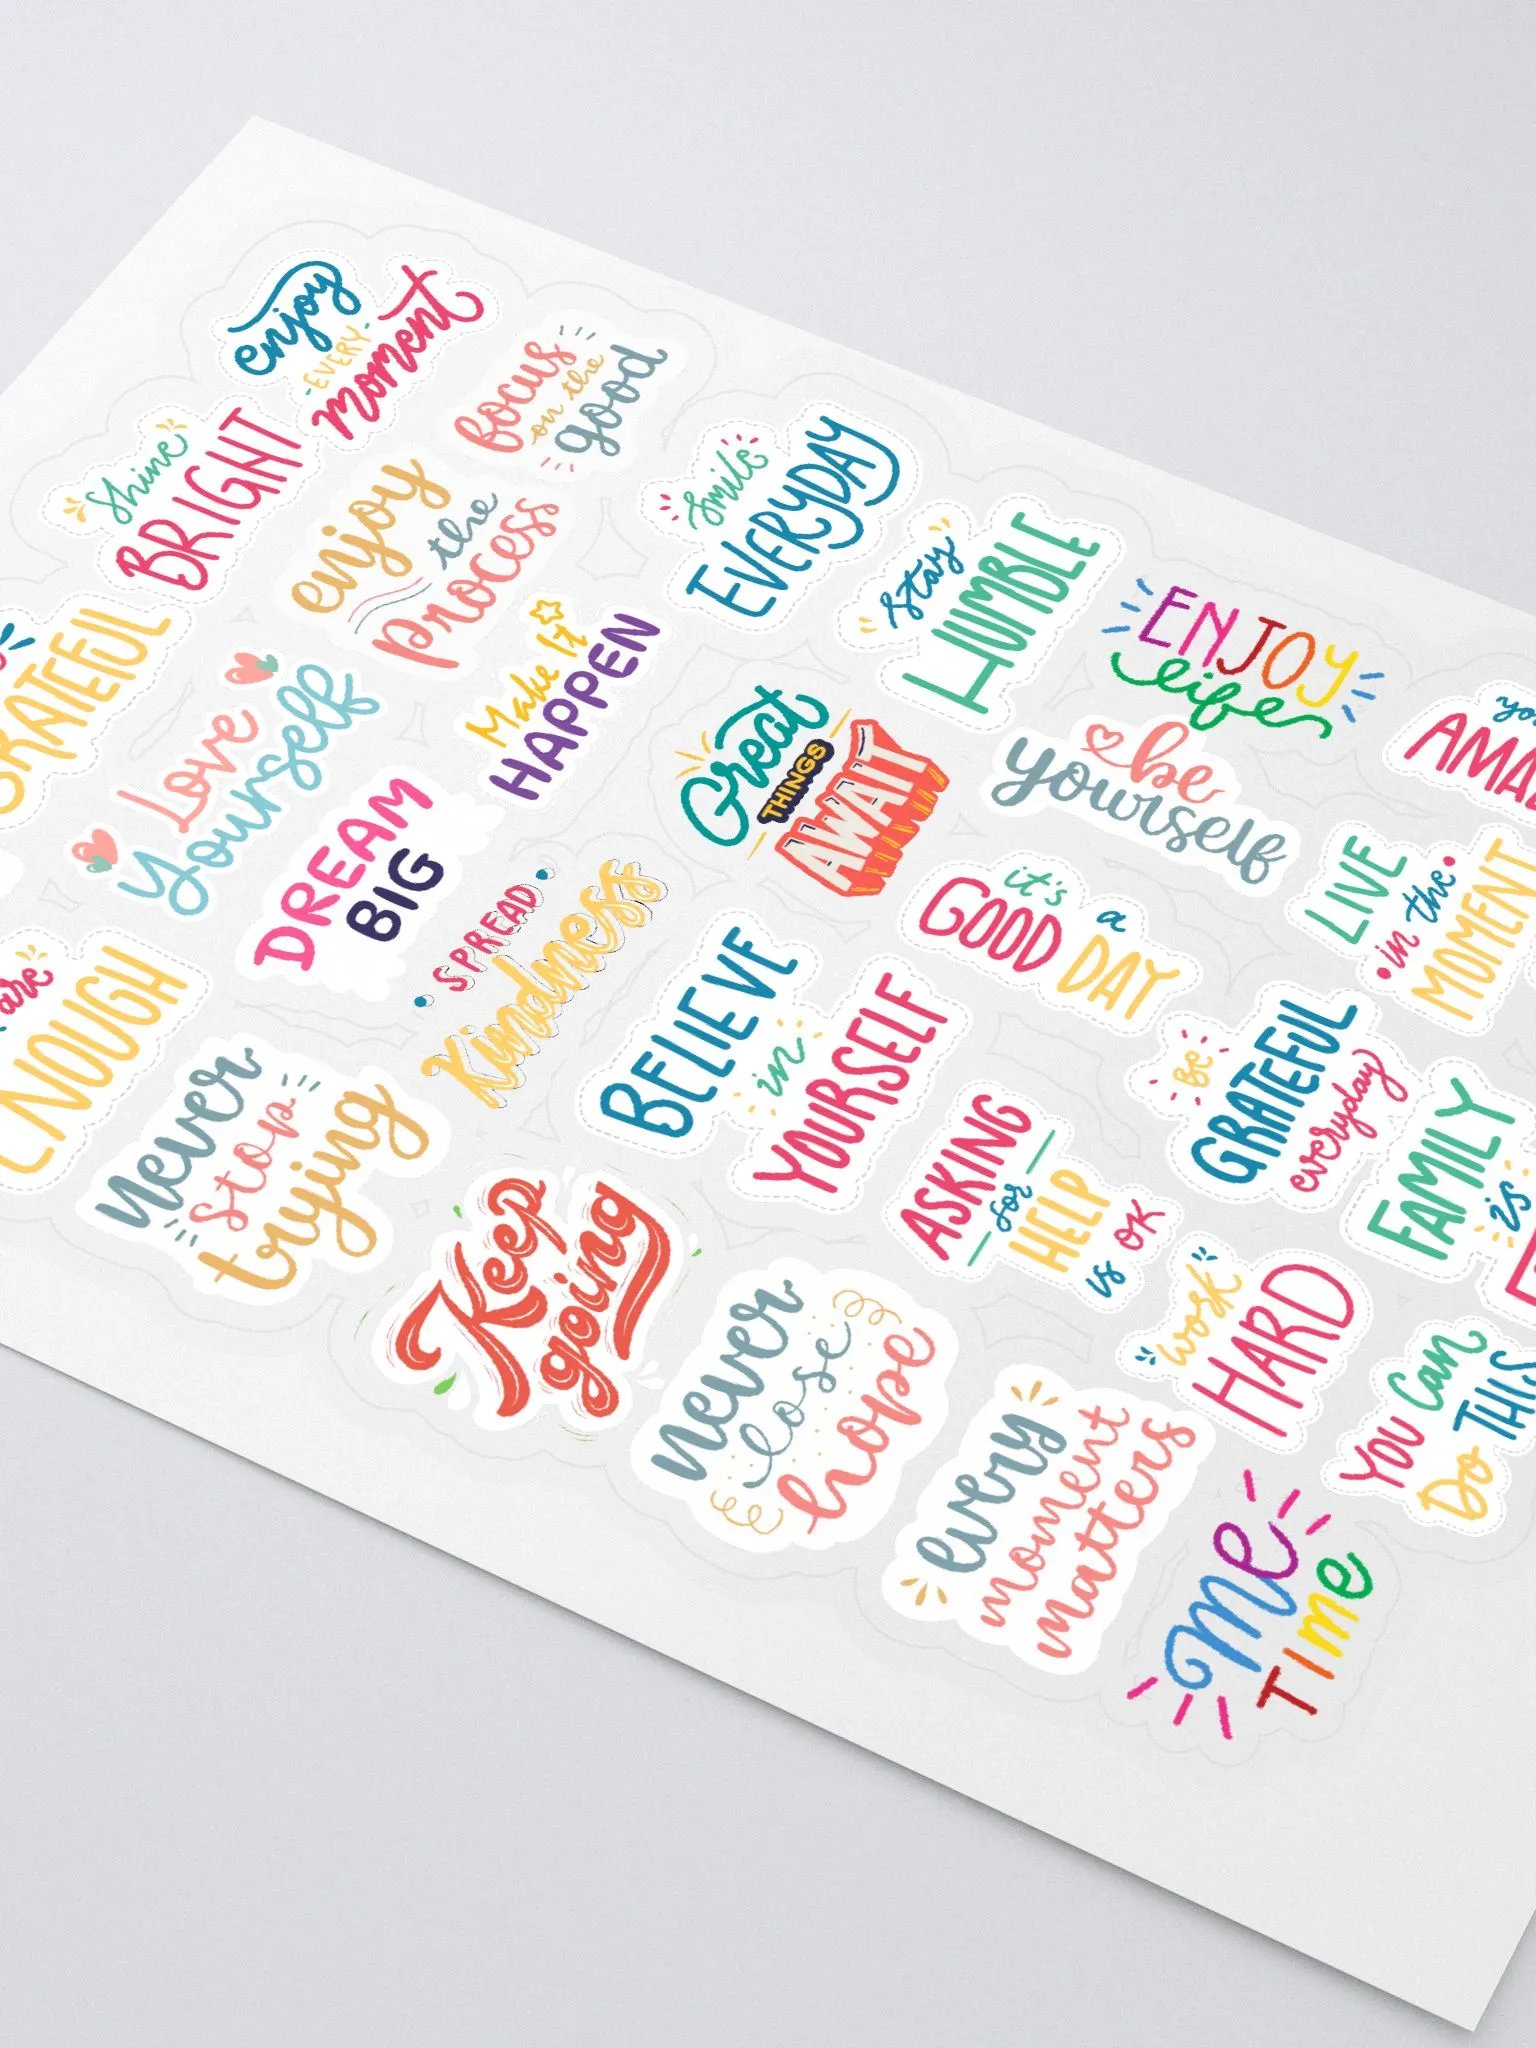 enjoy
EVERY
moment
focus
on the
good
Shine
BRIGHT
enjoy
the
process
Smile
EVERYDAY
Stay
HUMBLE
ENJOY
life
GRATEFUL
Love
Yourself
Make It
HAPPEN
Great
THINGS
AWAIT
be
yourself
DREAM
BIG
SPREAD
Kindness
it's
GOOD
a
DAY
LIVE
in the
MOMENT
are
ENOUGH
never
stop
trying
BELIEVE
in
YOURSELF
BE
GRATEFUL
everyday
ASKING
for
HELP
is OK
FAMILY
is
Keep
going
never
lose
hope
work
HARD
YOU Can
Do THIS
every
moment
matters
Me
TIME